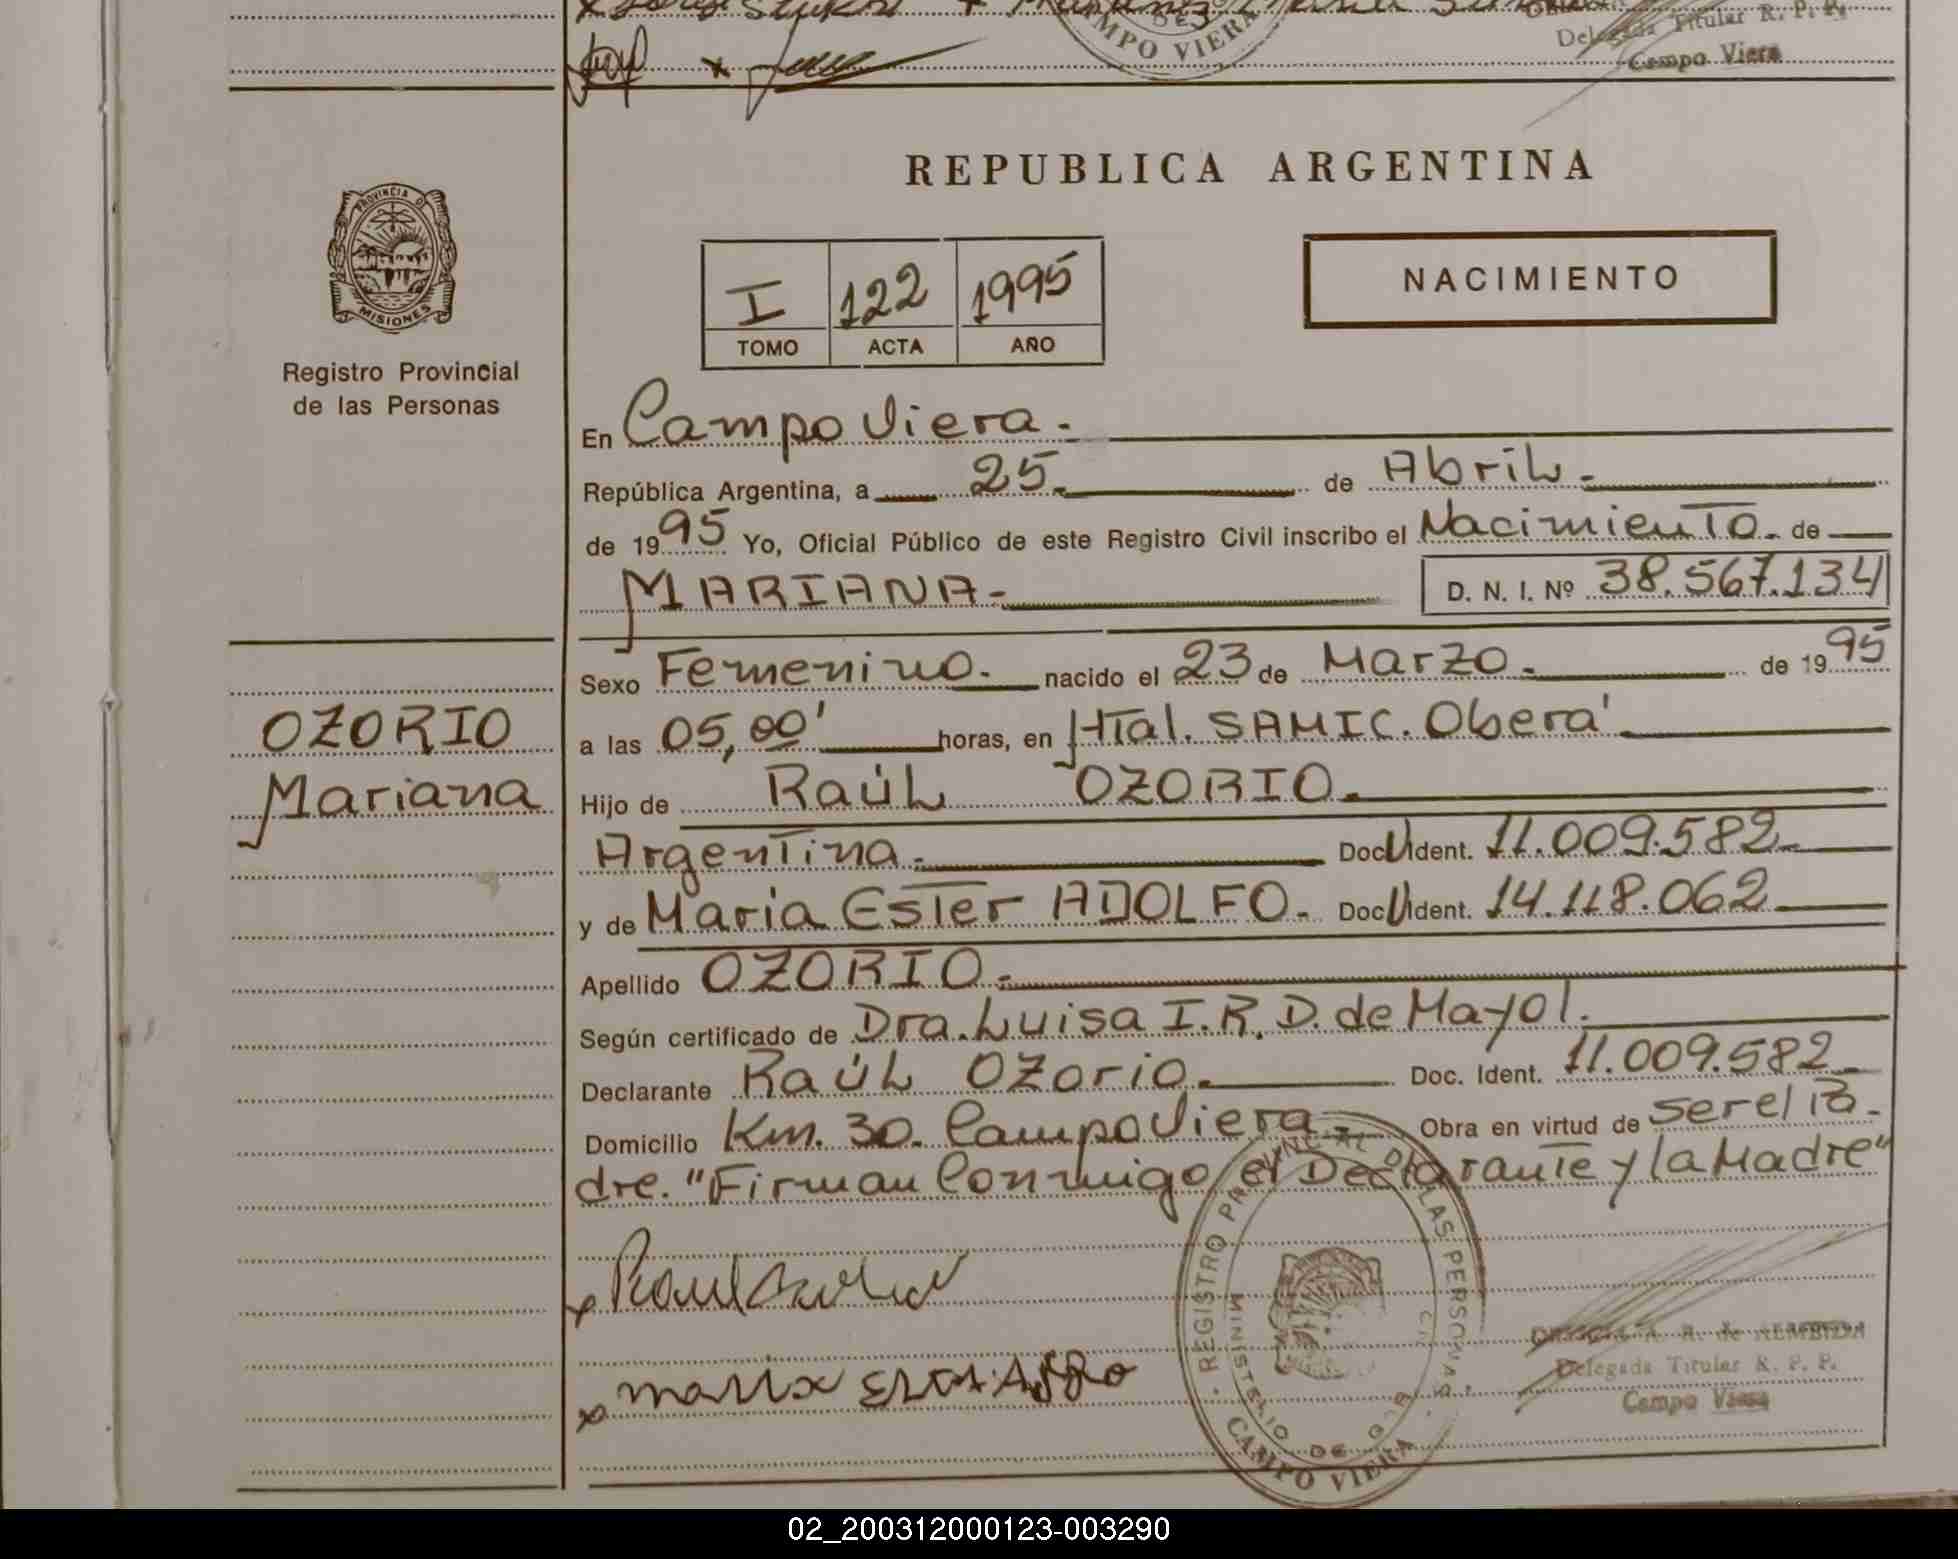 Delegada Titular R. P. P.
CAMPO VIERA
Campo Viera
REPUBLICA ARGENTINA
PROVINCIA DE
MISIONES
Registro Provincial
de las Personas
I 122 1995
TOMO ACTA AÑO
NACIMIENTO
En Campo Viera.
República Argentina, a 25. de Abril.
de 1995 Yo, Oficial Público de este Registro Civil inscribo el Nacimiento. de
MARIANA. D. N. I. Nº 38.567.134
Sexo Femenino. nacido el 23 de Marzo. de 1995
OZORIO
Mariana
a las 05,00' horas, en Htal. SAMIC. Oberá
Hijo de Raúl OZORIO.
Argentina. Doc U Ident. 11.009.582
y de Maria Ester ADOLFO. Doc U Ident. 14.118.062
Apellido OZORIO.
Según certificado de Dra. Luisa I. R. D. de Mayol.
Declarante Raúl Ozorio. Doc. Ident. 11.009.582
Domicilio Km. 30. Campo Viera Obra en virtud de ser el Pa-
dre. "Firman Conmigo el Declarante y la Madre"
REGISTRO PROVINCIAL DE LAS PERSONAS
MINISTERIO DE GOB
CAMPO VIERA
A. R. de ALMEIDA
Delegada Titular R. P. P.
Campo Viera
02_200312000123-003290